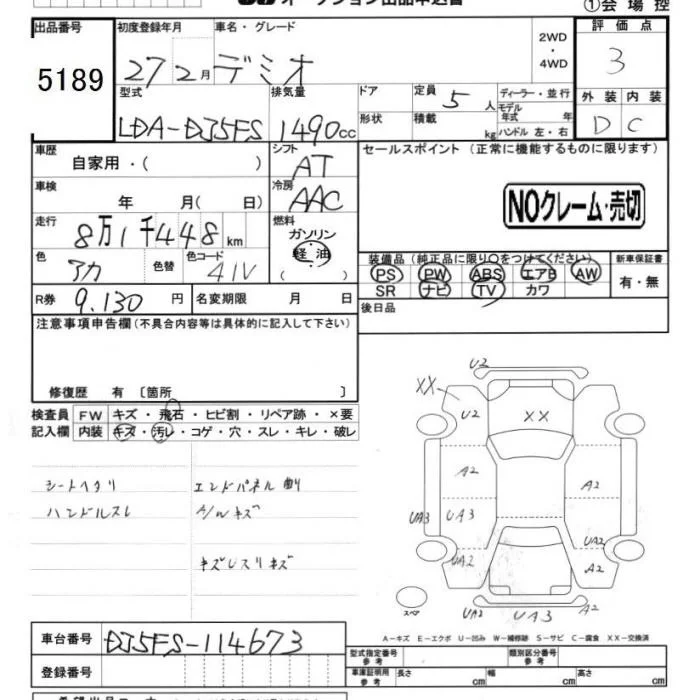 ①会 場 控
出品番号
5189
初度登録年月
車名・グレード
27 2月 デミオ
2WD
・
4WD
評 価 点
3
型式
LDA-DJ5FS
排気量
1490cc
ドア
定員
5 人
ディーラー・並行
モデル
年式 年
形状
積載
kg
ハンドル 左・右
外 装 内 装
D C
車歴
自家用・( )
シフト
AT
セールスポイント(正常に機能するものに限ります)
車検
年 月( 日)
冷房
AAC
NOクレーム・売切
走行
8万1千448km
燃料
ガソリン
軽 油
( )
色
アカ
色替
色コード
41V
装備品(純正品に限り○をつけてください)
PS PW ABS エアB AW
SR ナビ TV カワ
新車保証書
有・無
R券
9.130 円
名変期限 月 日
後日品
注意事項申告欄(不具合内容等は具体的に記入して下さい)
修復歴 有 〔箇所 〕
検査員
記入欄
FW キズ・飛石・ヒビ割・リペア跡・×要
内装 キズ・汚レ・コゲ・穴・スレ・キレ・破レ
シートヘタリ
エンドパネル
ハンドルスレ
A/Wキズ
U2
XX
U2
XX
A2
A2
UA3
UA3
UA2
UA2
A2
スペア
UA2
UA3
A2
車台番号
DJ5FS-114673
A-キズ E-エクボ U-凹み W-補修跡 S-サビ C-腐食 XX-交換済
型式指定番号
参考
類別区分番号
参考
登録番号
車庫証明用
参考
長さ cm
幅 cm
高さ cm